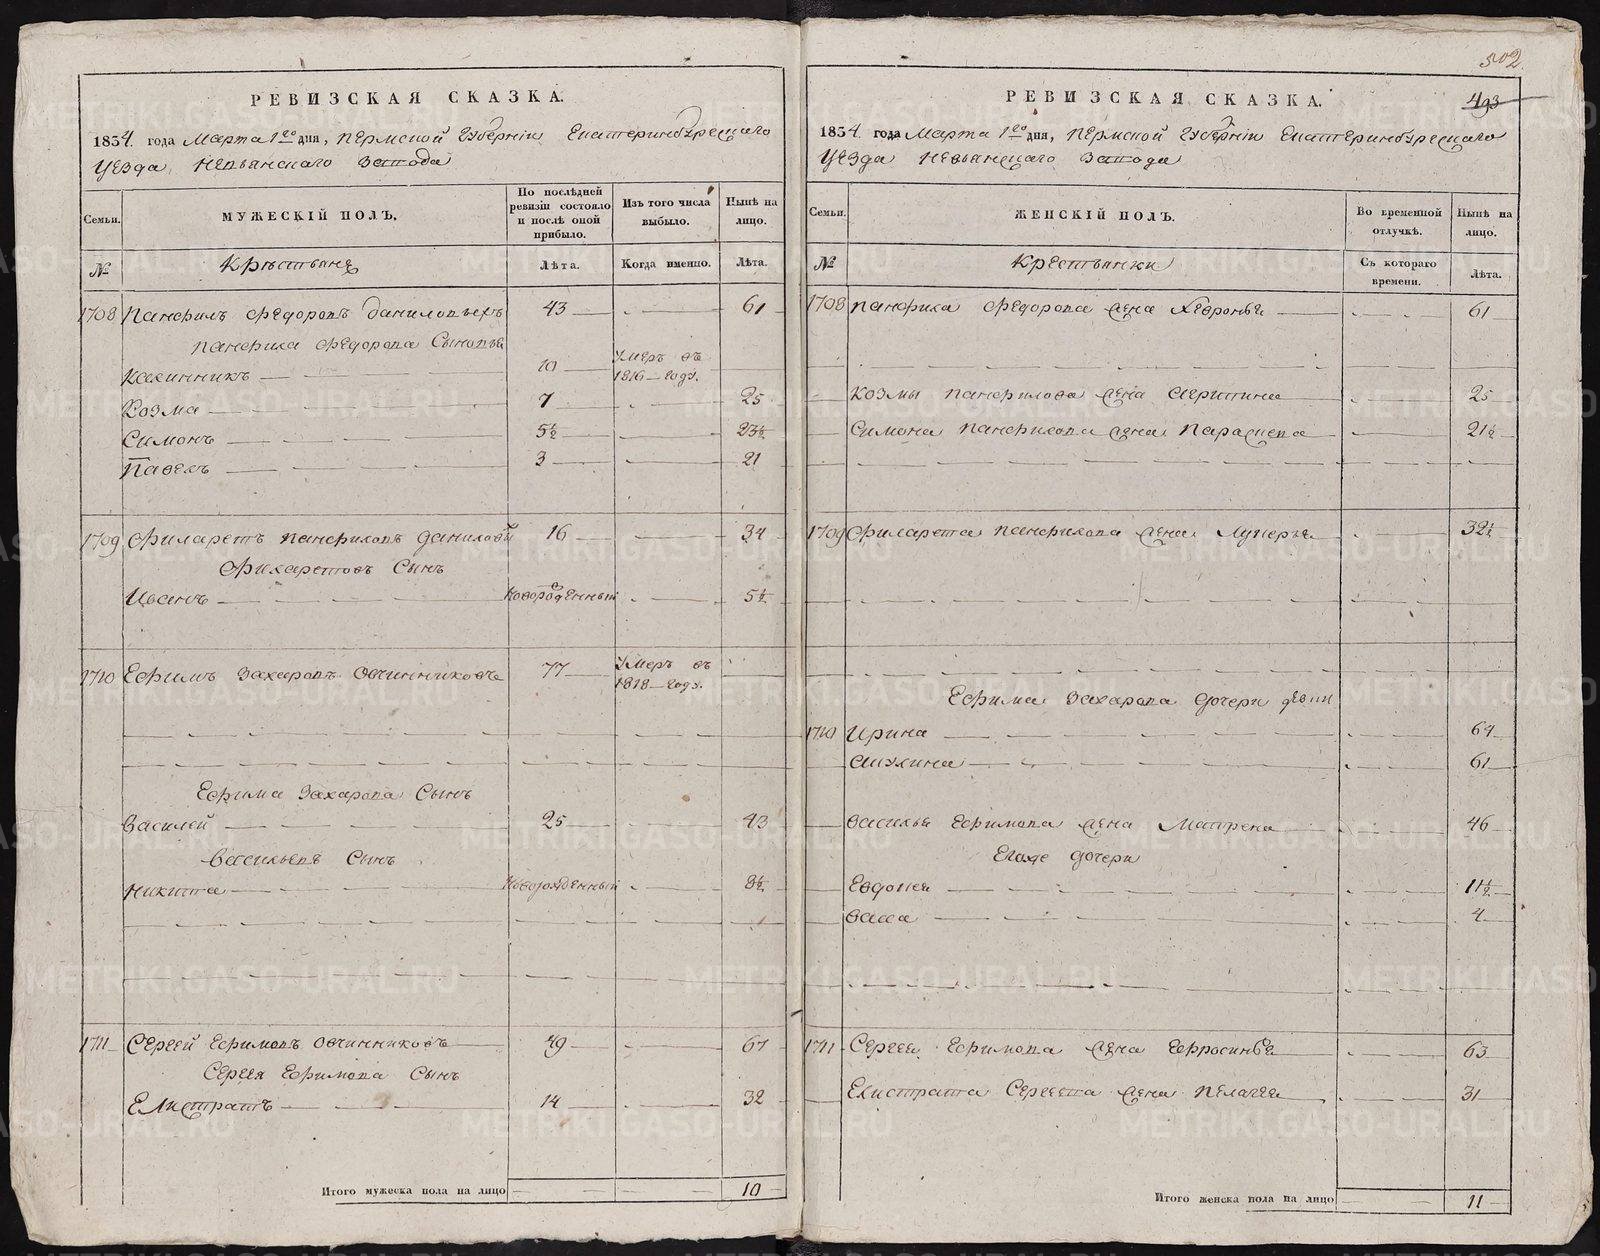 502.
493
РЕВИЗСКАЯ СКАЗКА.
1834. года Марта 1го дня, Пермской Губернии Екатеринбургскаго
Уезда, Невьянскаго Завода
Семьи.
МУЖЕСКІЙ ПОЛЪ.
По послѣдней ревизіи состояло и послѣ оной прибыло.
Изъ того числа выбыло.
Нынѣ на лицо.
№ Крѣстьянѣ Лѣта. Когда именно. Лѣта.
1708 Панфилъ Федоровъ Даниловыхъ 43 61
Панфила Федорова Сыновья
Калинникъ 10 Умеръ въ 1816 году.
Козма 7 25
Симонъ 5½ 23½
Павелъ 3 21
1709 Филаретъ Панфиловъ Даниловы 16 34
Филаретовъ Сынъ
Иванъ Новорожденный 5½
1710 Ефимъ Захаровъ Овчинниковъ 77 Умеръ въ 1818 году.
Ефима Захарова Сынъ
Василей 25 43
Васильевъ Сынъ
Никита Новорожденный 8½
1711 Сергей Ефимовъ Овчинниковъ 49 67
Сергея Ефимова Сынъ
Елистратъ 14 32
Итого мужеска пола на лицо 10
РЕВИЗСКАЯ СКАЗКА.
1834. года Марта 1го дня, Пермской Губернии Екатеринбургскаго
Уезда Невьянскаго Завода
Семьи.
ЖЕНСКІЙ ПОЛЪ.
Во временной отлучкѣ.
Нынѣ на лицо.
№ Крестьянки Съ котораго времени. Лѣта.
1708 Панфила Федорова жена Хевронья 61
Козмы Панфилова жена 25
Симона Панфилова жена Параскева 21½
1709 Филарета Панфилова жена Лукерья 32½
Ефима Захарова дочери девки
1710 Ирина 64
Акулина 61
Василья Ефимова жена Матрена 46
Егоже дочери
Евдокея 11½
Васса 4
1711 Сергея Ефимова жена Ефросинья 63
Елистрата Сергеева жена Пелагея 31
Итого женска пола на лицо 11
METRIKI.GASO-URAL.RU